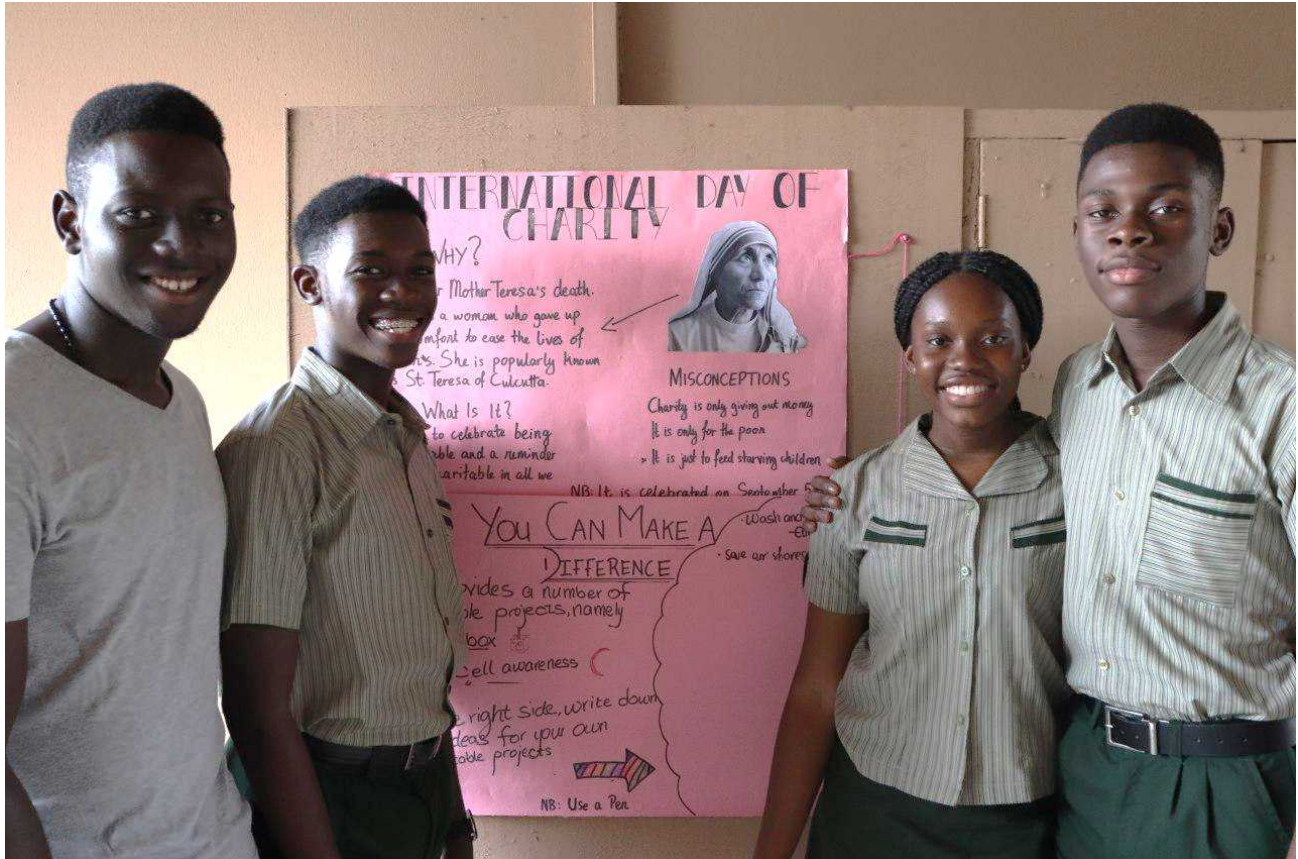 INTERNATIONAL DAY OF
CHARITY
WHY?
Mother Teresa's death.
a woman who gave up
to ease the lives of
She is popularly known
St. Teresa of Culcutta.
What Is It?
to celebrate being
and a reminder
in all we
MISCONCEPTIONS
Charity is only giving out money
It is only for the poor
It is just to feed starving children
NB: It is celebrated on September 5
YOU CAN MAKE A
DIFFERENCE
a number of
projects, namely
box
awareness
right side, write down
for your own
projects
NB: Use a Pen
• Wash and
• Save our shores